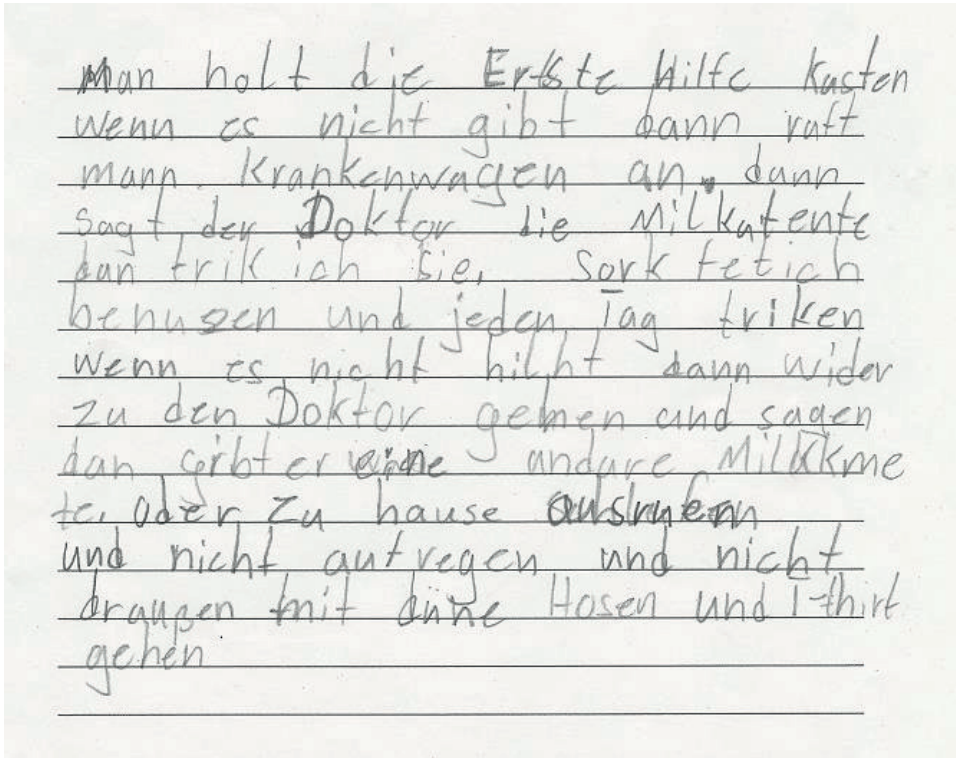 Man holt die Erste Hilfe Kasten
wenn es nicht gibt dann ruft
mann. Krankenwagen an. dann
sagt der Doktor die Milkatente
dan trik ich sie, Sorkfetich
benuzen und jeden Tag triken
wenn es nicht hilht dann wider
zu den Doktor gehen und sagen
dan gibt er eine andare Milkkme
te, oder zu hause ausruhen
und nicht aufregen und nicht
draußen mit düne Hosen und T-thirt
gehen